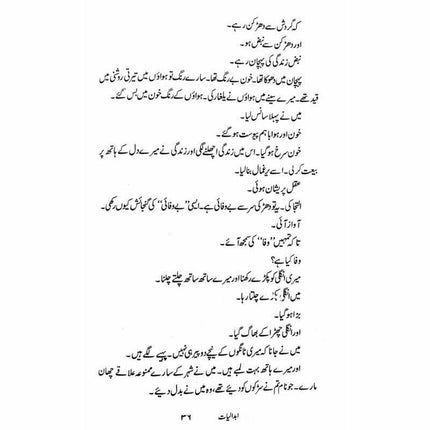 کہ گردش سے دھڑکن رہے۔
اور دھڑکن سے نبض ہو۔
نبض زندگی کی پہچان رہے۔
پہچان میں دھوکا تھا۔ خون بے رنگ تھا۔ سارے رنگ تو ہواؤں میں تیرتی روشنی میں
قید تھے۔ میرے سینے میں ہواؤں نے یلغار کی۔ ہواؤں کے رنگ خون میں بس گئے۔
میں نے پہلا سانس لیا۔
خون اور ہوا باہم پیوست ہو گئے۔
خون سرخ ہو گیا۔ اس میں زندگی اچھلنے لگی اور زندگی نے میرے دل کے ہاتھ پر
بیعت کر لی۔ اسے یرغمال بنا لیا۔
عقل پریشان ہوئی۔
التجا کی۔ یہ تو دھڑکی سر سے بے وفائی ہے۔ ایسی "بے وفائی" کی گنجائش کیوں رکھی۔
آواز آئی۔
تاکہ تمہیں "وفا" کی سمجھ آئے۔
وفا کیا ہے؟
میری انگلی کو پکڑے رکھنا اور میرے ساتھ ساتھ چلتے چلنا۔
میں انگلی پکڑے چلتا رہا۔
بڑا ہو گیا۔
اور انگلی چھڑا کے بھاگ گیا۔
میں نے جانا کہ میری ٹانگوں کے نیچے دو پیر ہی نہیں۔ پہیے لگے ہیں۔
اور میرے ہاتھ بہت لمبے ہیں۔ میں نے شہر کے سارے ممنوعہ علاقے چھان
مارے۔ جو نام تم نے سڑکوں کو دیئے تھے، وہ میں نے بدل دیئے۔
ابدالیات ۳۶